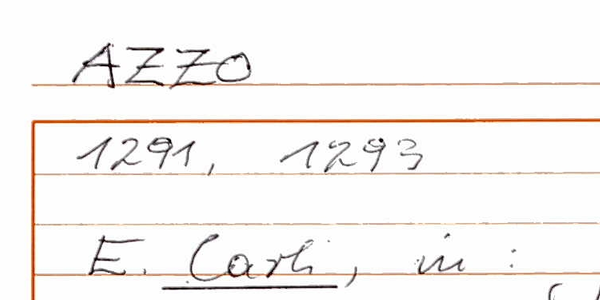 AZZO
1291, 1293
E. Carli, in :